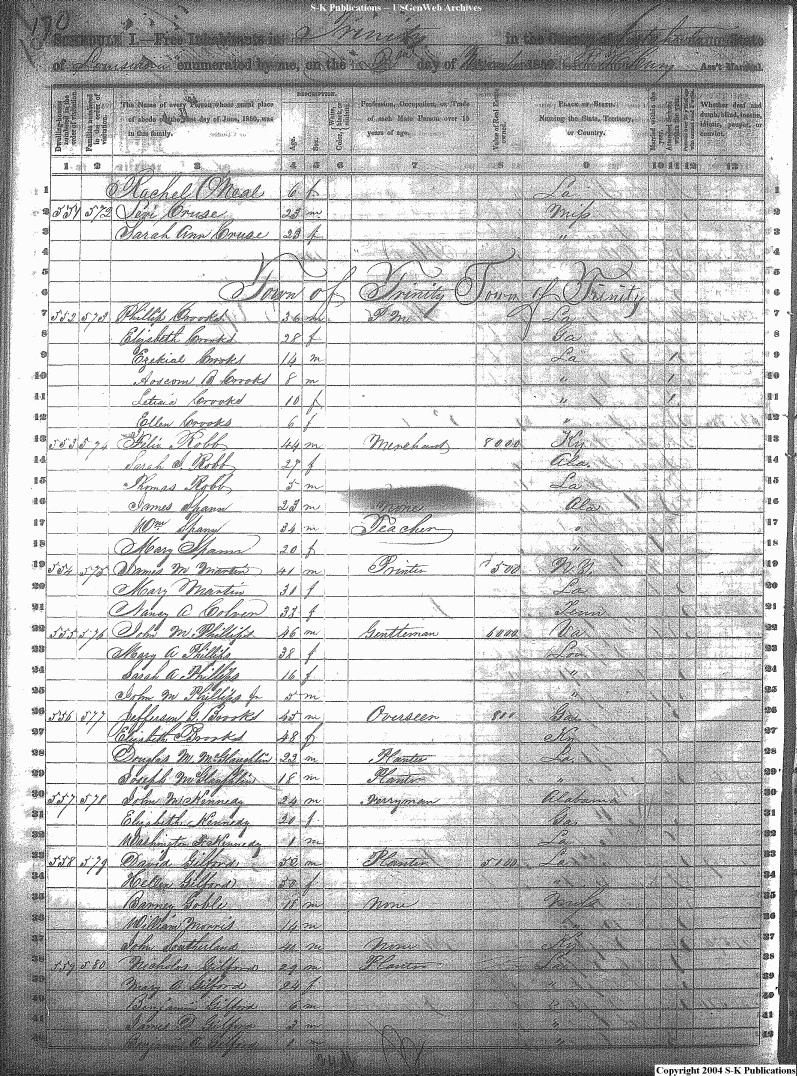 S-K Publications -- USGenWeb Archives
170
SCHEDULE I.—Free Inhabitants in Trinity in the County of State
of Louisiana enumerated by me, on the day of 1850. Ass't Marshal.
DESCRIPTION.
Dwelling-houses numbered in the order of visitation.
Families numbered in the order of visitation.
The Name of every Person whose usual place of abode on the first day of June, 1850, was in this family.
Age.
Sex.
Color,
Profession, Occupation, or Trade of each Male Person over 15 years of age.
Value of Real Estate owned.
PLACE OF BIRTH. Naming the State, Territory, or Country.
Married within the year.
Whether deaf and dumb, blind, insane, idiotic, pauper, or convict.
1 2 3 4 5 6 7 8 9 10 11 12 13
1 Rachel O'Neal 6 f La 1
2 551 572 Levi Cruse 23 m Miss 2
3 Sarah Ann Cruse 23 f " 3
4 4
5 5
6 Town of Trinity Town of Trinity 6
7 552 573 Phillip Crooks 36 m P M La 7
8 Elizabeth Crooks 28 f Ga 8
9 Ezekial Crooks 14 m La 1 9
10 B Crooks 8 m " 1 10
11 Leticia Crooks 10 f " 1 11
12 Ellen Crooks 6 f " 12
13 553 574 Felix Robb 44 m Merchant 8000 Ky 13
14 Sarah Robb 27 f Ala 14
15 Thomas Robb 5 m La 15
16 James Spann 23 m none Ala 16
17 Wm Spann 34 m Teacher " 17
18 Mary Spann 20 f " 18
19 554 575 James M Martin 41 m Printer 500 N.Y. 19
20 Mary Martin 31 f La 20
21 Nancy A Colvin 37 f Tenn 21
22 555 576 John M Phillips 46 m Gentleman 6000 Va 22
23 Mary A Phillips 38 f Lou 23
24 Sarah A Phillips 16 f " 24
25 John M Phillips Jr 5 m " 25
26 556 577 Jefferson G. Brooks 45 m Overseer 800 Ga 26
27 Elizabeth Brooks 48 f Ky 27
28 Douglas M. McGlaughlin 23 m Planter La 28
29 Joseph McGlaughlin 18 m Planter " 29
30 557 578 John McKennedy 24 m Ferryman Alabama 30
31 Elizabeth Kennedy 20 f Ga 31
32 Washington F. Kennedy 1 m La 32
33 558 579 David Gilford 50 m Planter 5100 La 33
34 Hellen Gilford 50 f " 34
35 Barney Goble 18 m None 35
36 William Morris 14 m 36
37 John Sutherland 41 m None Ky 37
38 559 580 Nicholas Gilford 29 m Planter La 38
39 Mary A Gilford 24 f " 39
40 Benjamin Gilford 6 m " 40
41 James D Gilford 3 m " 41
42 Gilford 1 m " 42
Copyright 2004 S-K Publications